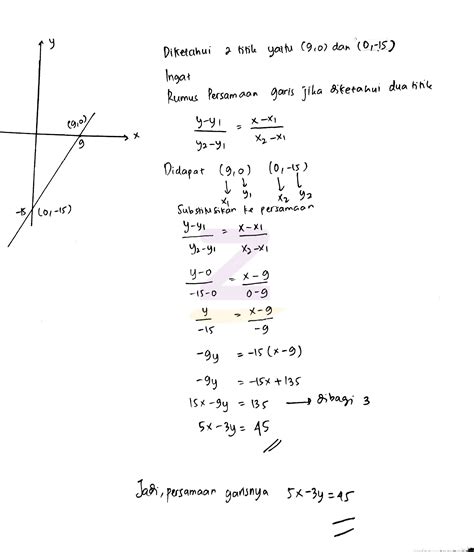 y
(9,0)
x
9
-15
(0,-15)
Diketahui 2 titik yaitu (9,0) dan (0,-15)
Ingat
Rumus Persamaan garis jika diketahui dua titik
y-y₁/y₂-y₁ = x-x₁/x₂-x₁
Didapat (9,0) (0,-15)
x₁ y₁ x₂ y₂
Substitusikan ke persamaan
y-y₁/y₂-y₁ = x-x₁/x₂-x₁
y-0/-15-0 = x-9/0-9
y/-15 = x-9/-9
-9y = -15(x-9)
-9y = -15x+135
15x-9y = 135 → dibagi 3
5x-3y = 45
Jadi, persamaan garisnya 5x-3y=45